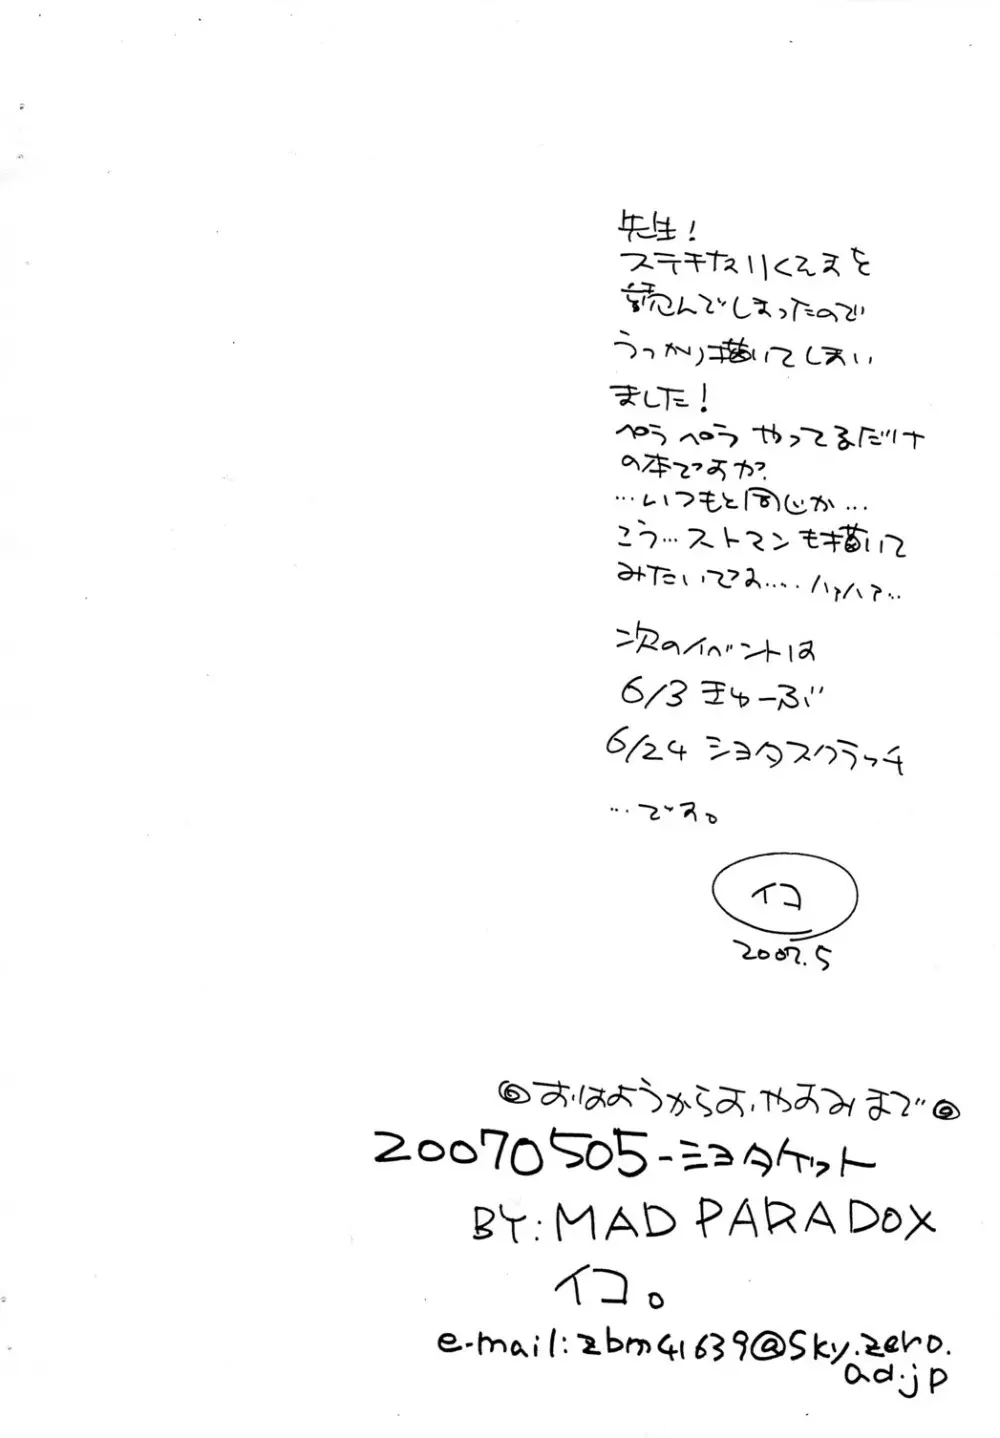 先生!
ステキなりくえすを
読んでしまったので
うっかり描いてしまい
ました!
ペラペラ やってるだけ
の本ですか?
…いつもと同じか…
こう…ストマンも描いて
みたいでお…. ハァハァ…
次のイベントは
6/3 きゅーぶ
6/24 ショタスクラッチ
…です。
イコ
2007.5
◎おはようからおやすみまで◎
20070505-ショタケット
BY:MAD PARADOX
イコ。
e-mail:zbm41639@sky.zero.
ad.jp